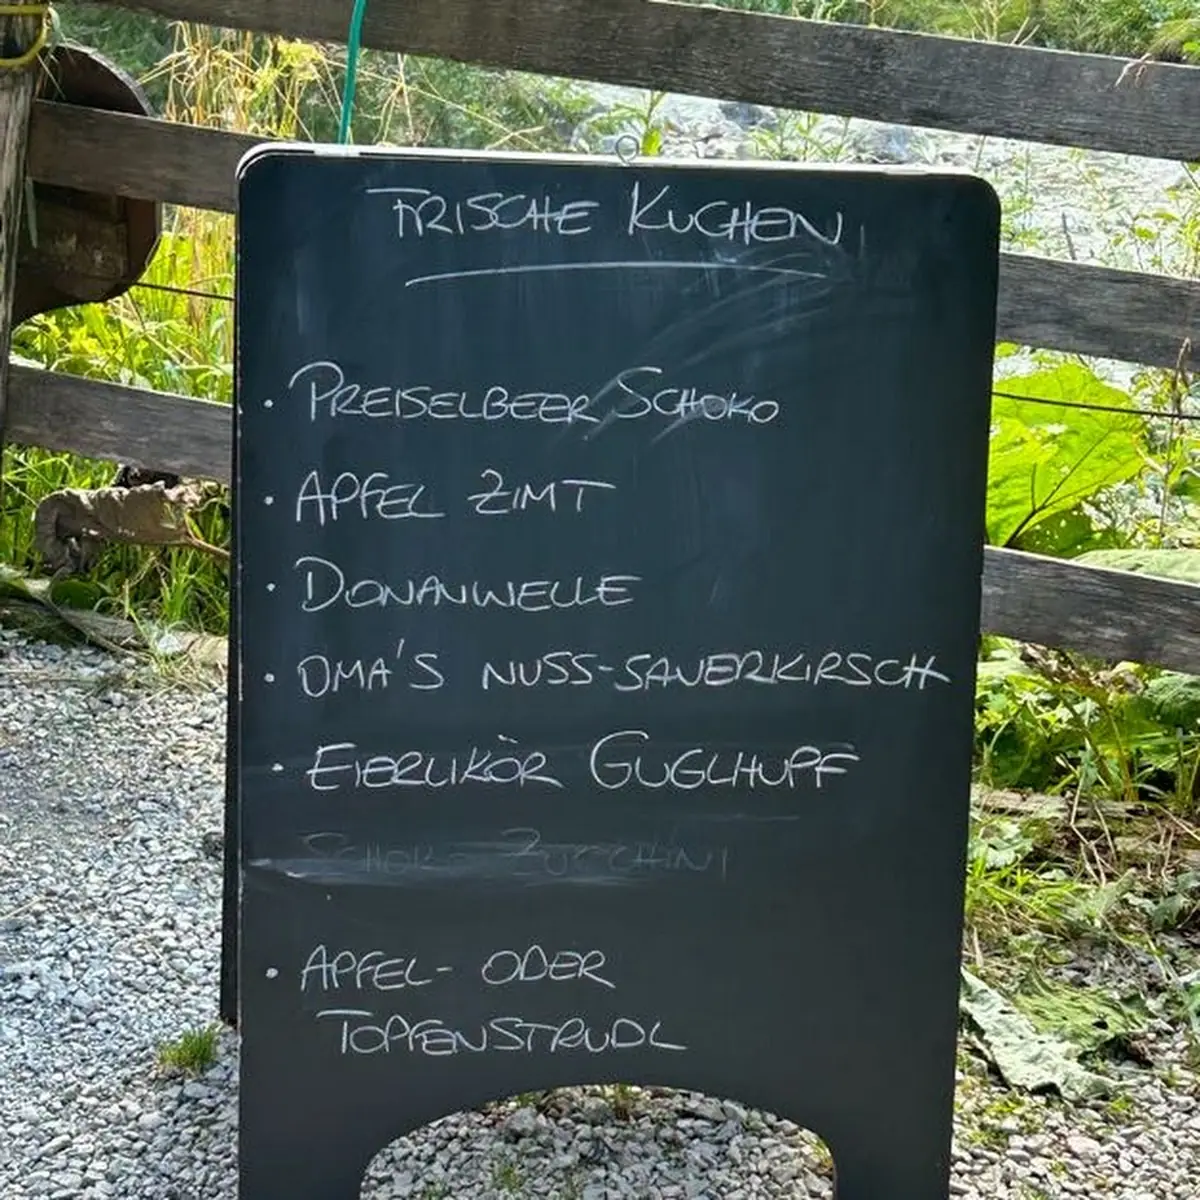 FRISCHE KUCHEN
• PREISELBEER SCHOKO
• APFEL ZIMT
• DONAUWELLE
• OMA'S NUSS-SAUERKIRSCH
• EIERLIKÖR GUGLHUPF
SCHOKO ZUCCHINI
• APFEL- ODER
TOPFENSTRUDL